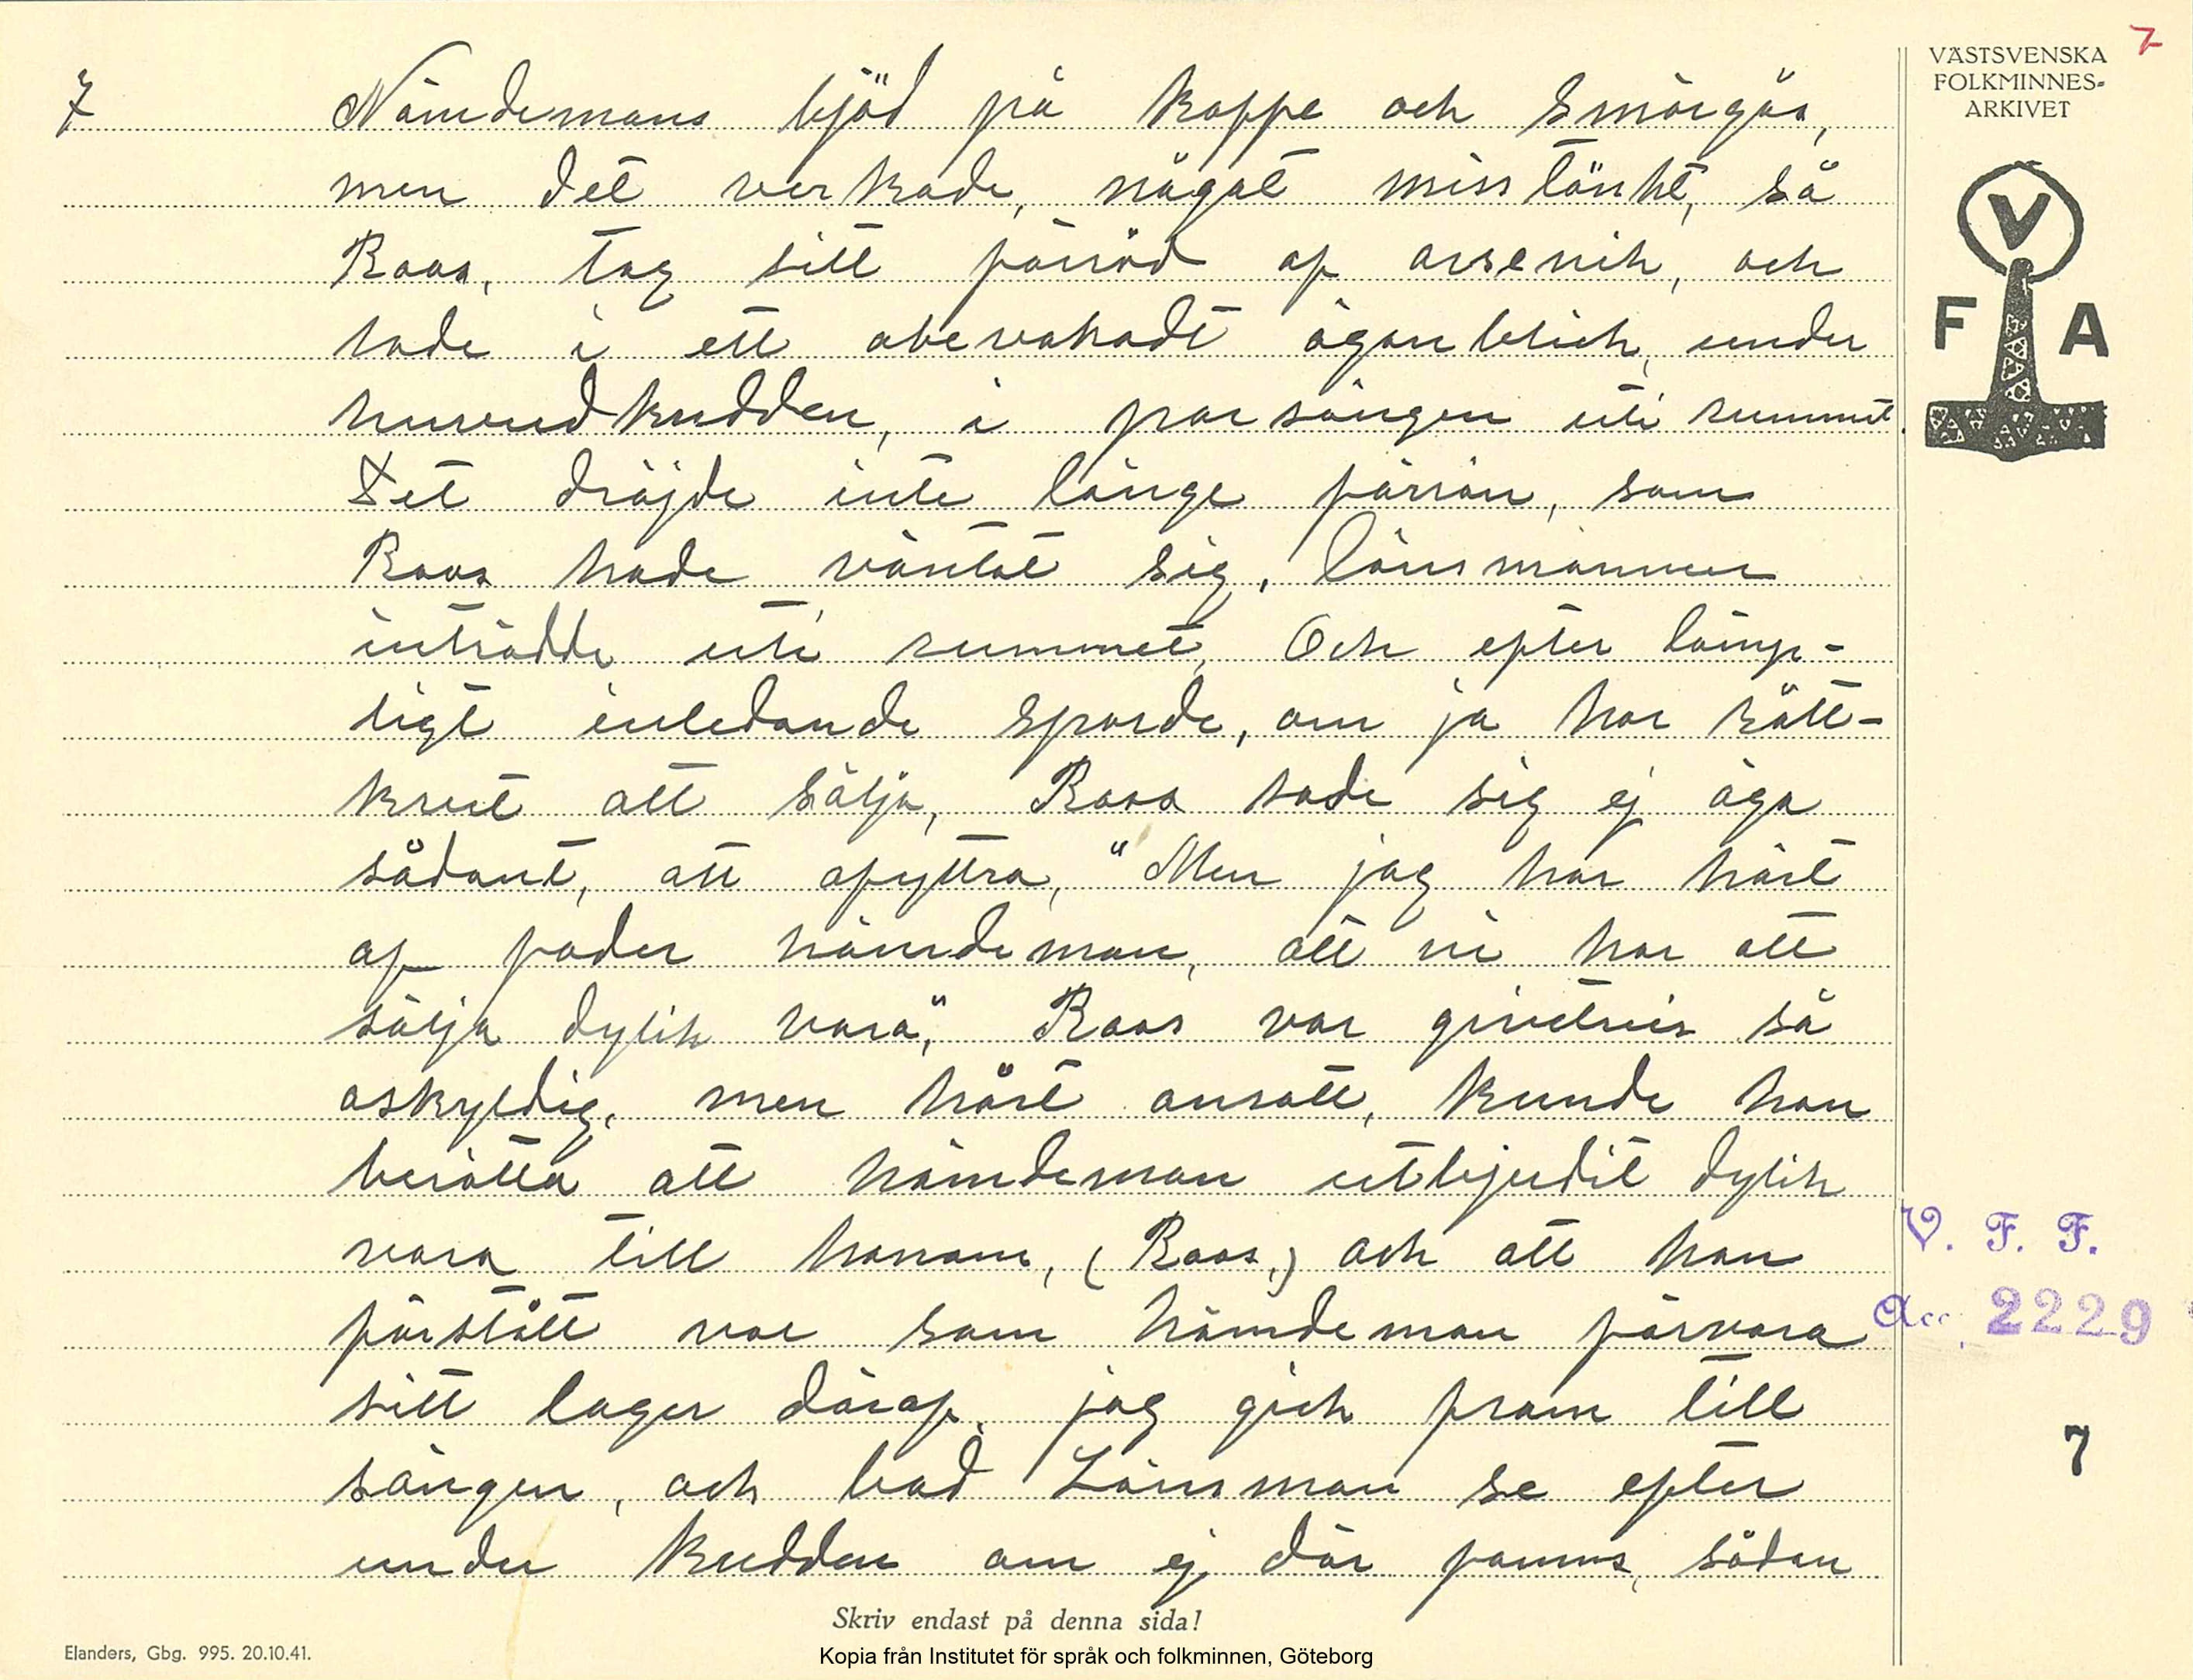 7
VÄSTSVENSKA
FOLKMINNES-
ARKIVET
V
F A
7 Nämdemans bjöd på kaffe och smörgås,
men det verkade, något misstänkt, så
Roos, tog sitt förråd af arsenik, och
lade i ett obevakadt ögonblick, under
huvudkudden, i parsängen uti rummet.
Det dröjde inte länge förrän, som
Roos hade väntat sig, länsmannen
inträdde uti rummet, Och efter lämp-
ligt inledande sporde, om ja har rått-
krut att sälja, Roos sade sig ej äga
sådant, att afyttra, "Men jag har hört
af fader nämdeman, att ni har att
sälja dylik vara", Roos var givetvis så
oskyldig, men hårt ansatt, kunde han
berätta att nämdeman utbjudit dylik
vara till honom, (Roos,) och att han
förstått var som nämdeman förvara
sitt lager däraf, jag gick fram till
sängen, och bad Länsman se efter
under kudden om ej där fanns, sådan
V. F. F.
Acc. 2229
7
Skriv endast på denna sida!
Elanders, Gbg. 995. 20.10.41.
Kopia från Institutet för språk och folkminnen, Göteborg